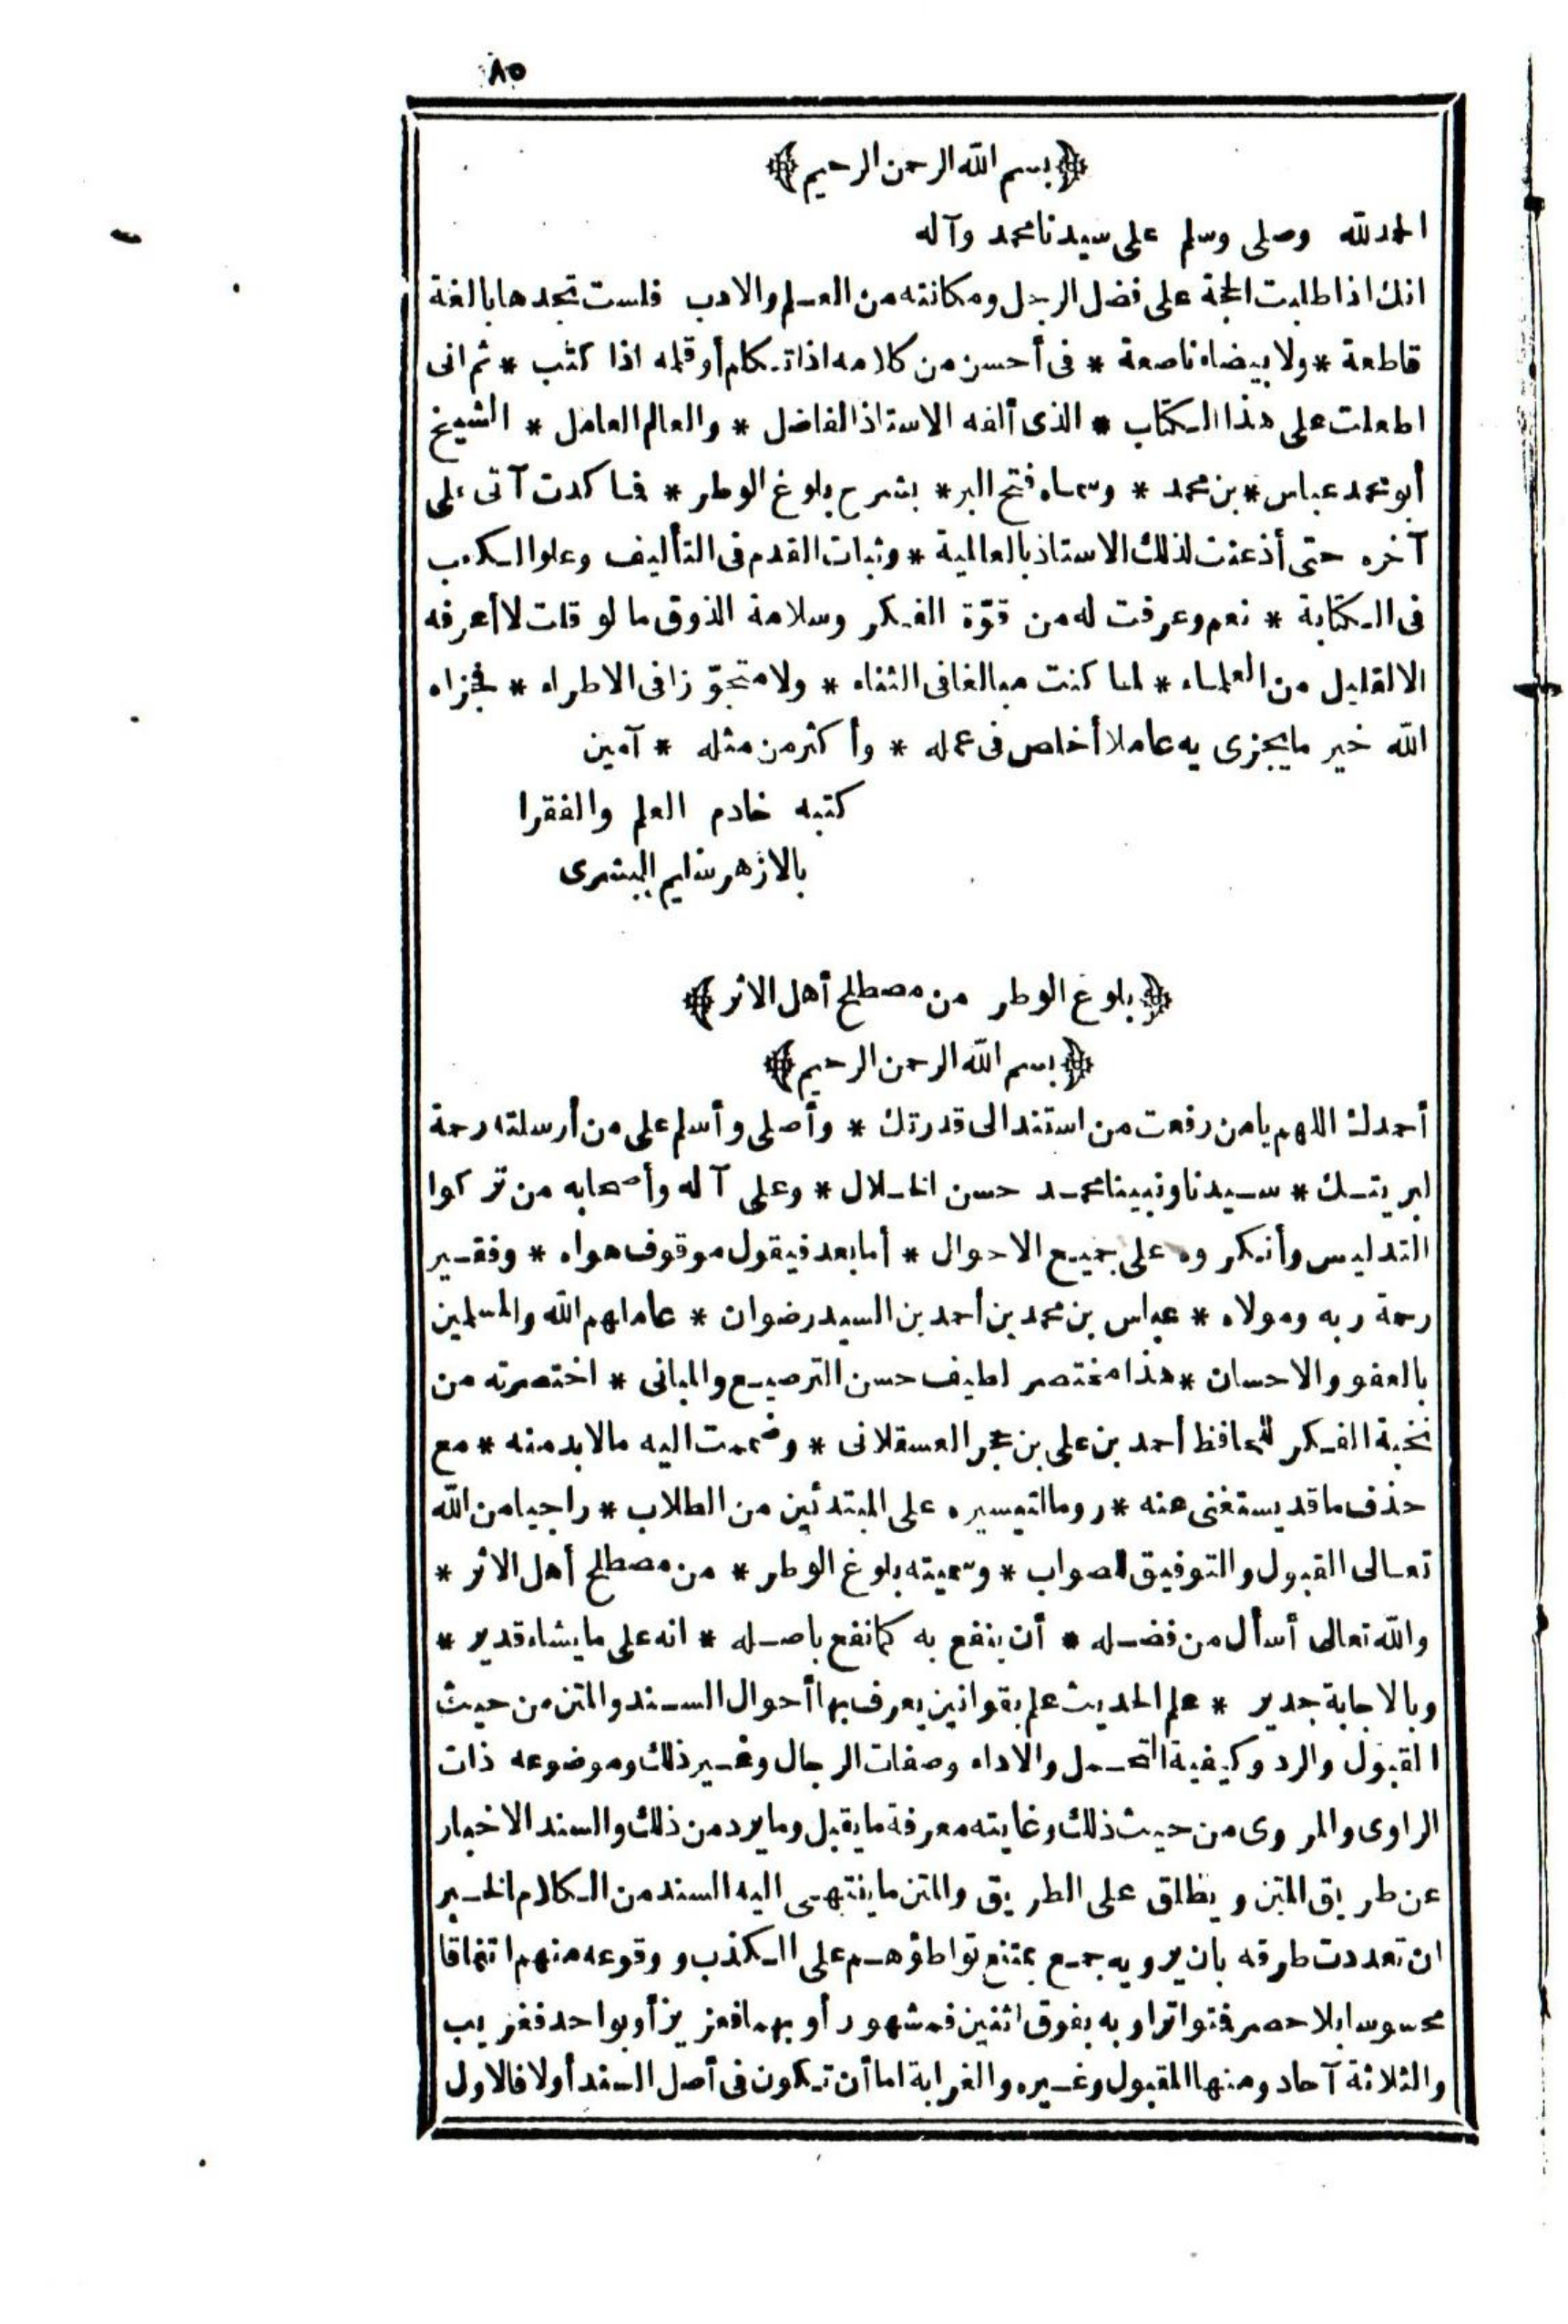 ٨٥
﴿بسم الله الرحمن الرحيم﴾
الحمد لله وصلى وسلم على سيدنا محمد وآله
انك اذا طلبت الحجة على فضل الرجل ومكانته من العلم والادب فلست تجدها بالغة
قاطعة * ولا بيضاء ناصعة * فى أحسن من كلامه اذا تكلم أو قلمه اذا كتب * ثم انى
اطلعت على هذا الكتاب * الذى ألفه الاستاذ الفاضل * والعالم العامل * الشيخ
أبو محمد عباس * بن محمد * وسماه فتح البر * بشرح بلوغ الوطر * فما كدت آتى على
آخره حتى أذعنت لذلك الاستاذ بالعالمية * وثبات القدم فى التأليف وعلو الكعب
فى الكتابة * نعم وعرفت له من قوّة الفكر وسلامة الذوق ما لو قلت لا أعرفه
الا لقليل من العلماء * لما كنت مبالغا فى الثناء * ولا متجوّزا فى الاطراء * فجزاه
الله خير ما يجزى به عاملا أخلص فى عمله * وأكثر من مثله * آمين
كتبه خادم العلم والفقرا
بالازهر سليم البشرى
﴿بلوغ الوطر من مصطلح أهل الاثر﴾
﴿بسم الله الرحمن الرحيم﴾
أحمدك اللهم يا من رفعت من استند الى قدرتك * وأصلى وأسلم على من أرسلته رحمة
لبريتك * سيدنا ونبينا محمد حسن الخلال * وعلى آله وأصحابه من تركوا
التدليس وأنكروه على جميع الاحوال * أما بعد فيقول موقوف هواه * وفقير
رحمة ربه ومولاه * عباس بن محمد بن أحمد بن السيد رضوان * عاملهم الله والمسلمين
بالعفو والاحسان * هذا مختصر لطيف حسن الترصيع والمبانى * اختصرته من
نخبة الفكر للحافظ أحمد بن على بن حجر العسقلانى * وضممت اليه مالا بد منه * مع
حذف ما قد يستغنى عنه * روما لتيسيره على المبتدئين من الطلاب * راجيا من الله
تعالى القبول والتوفيق للصواب * وسميته بلوغ الوطر * من مصطلح أهل الاثر *
والله تعالى أسأل من فضله * أن ينفع به كما نفع باصله * انه على ما يشاء قدير *
وبالاجابة جدير * علم الحديث علم بقوانين يعرف بها أحوال السند والمتن من حيث
القبول والرد وكيفية التحمل والاداء وصفات الرجال وغير ذلك وموضوعه ذات
الراوى والمروى من حيث ذلك وغايته معرفة ما يقبل وما يرد من ذلك والسند الاخبار
عن طريق المتن ويطلق على الطريق والمتن ما ينتهى اليه السند من الكلام الخبر
ان تعددت طرقه بان يرويه جمع يمتنع تواطؤهم على الكذب و وقوعه منهم اتفاقا
محسوسا بلا حصر فتواتر او به بفوق اثنين فمشهور أو بهما فعزيز أو بواحد فغريب
والثلاثة آحاد ومنها المقبول وغيره والغرابة اما أن تكون فى أصل السند أولا فالاول